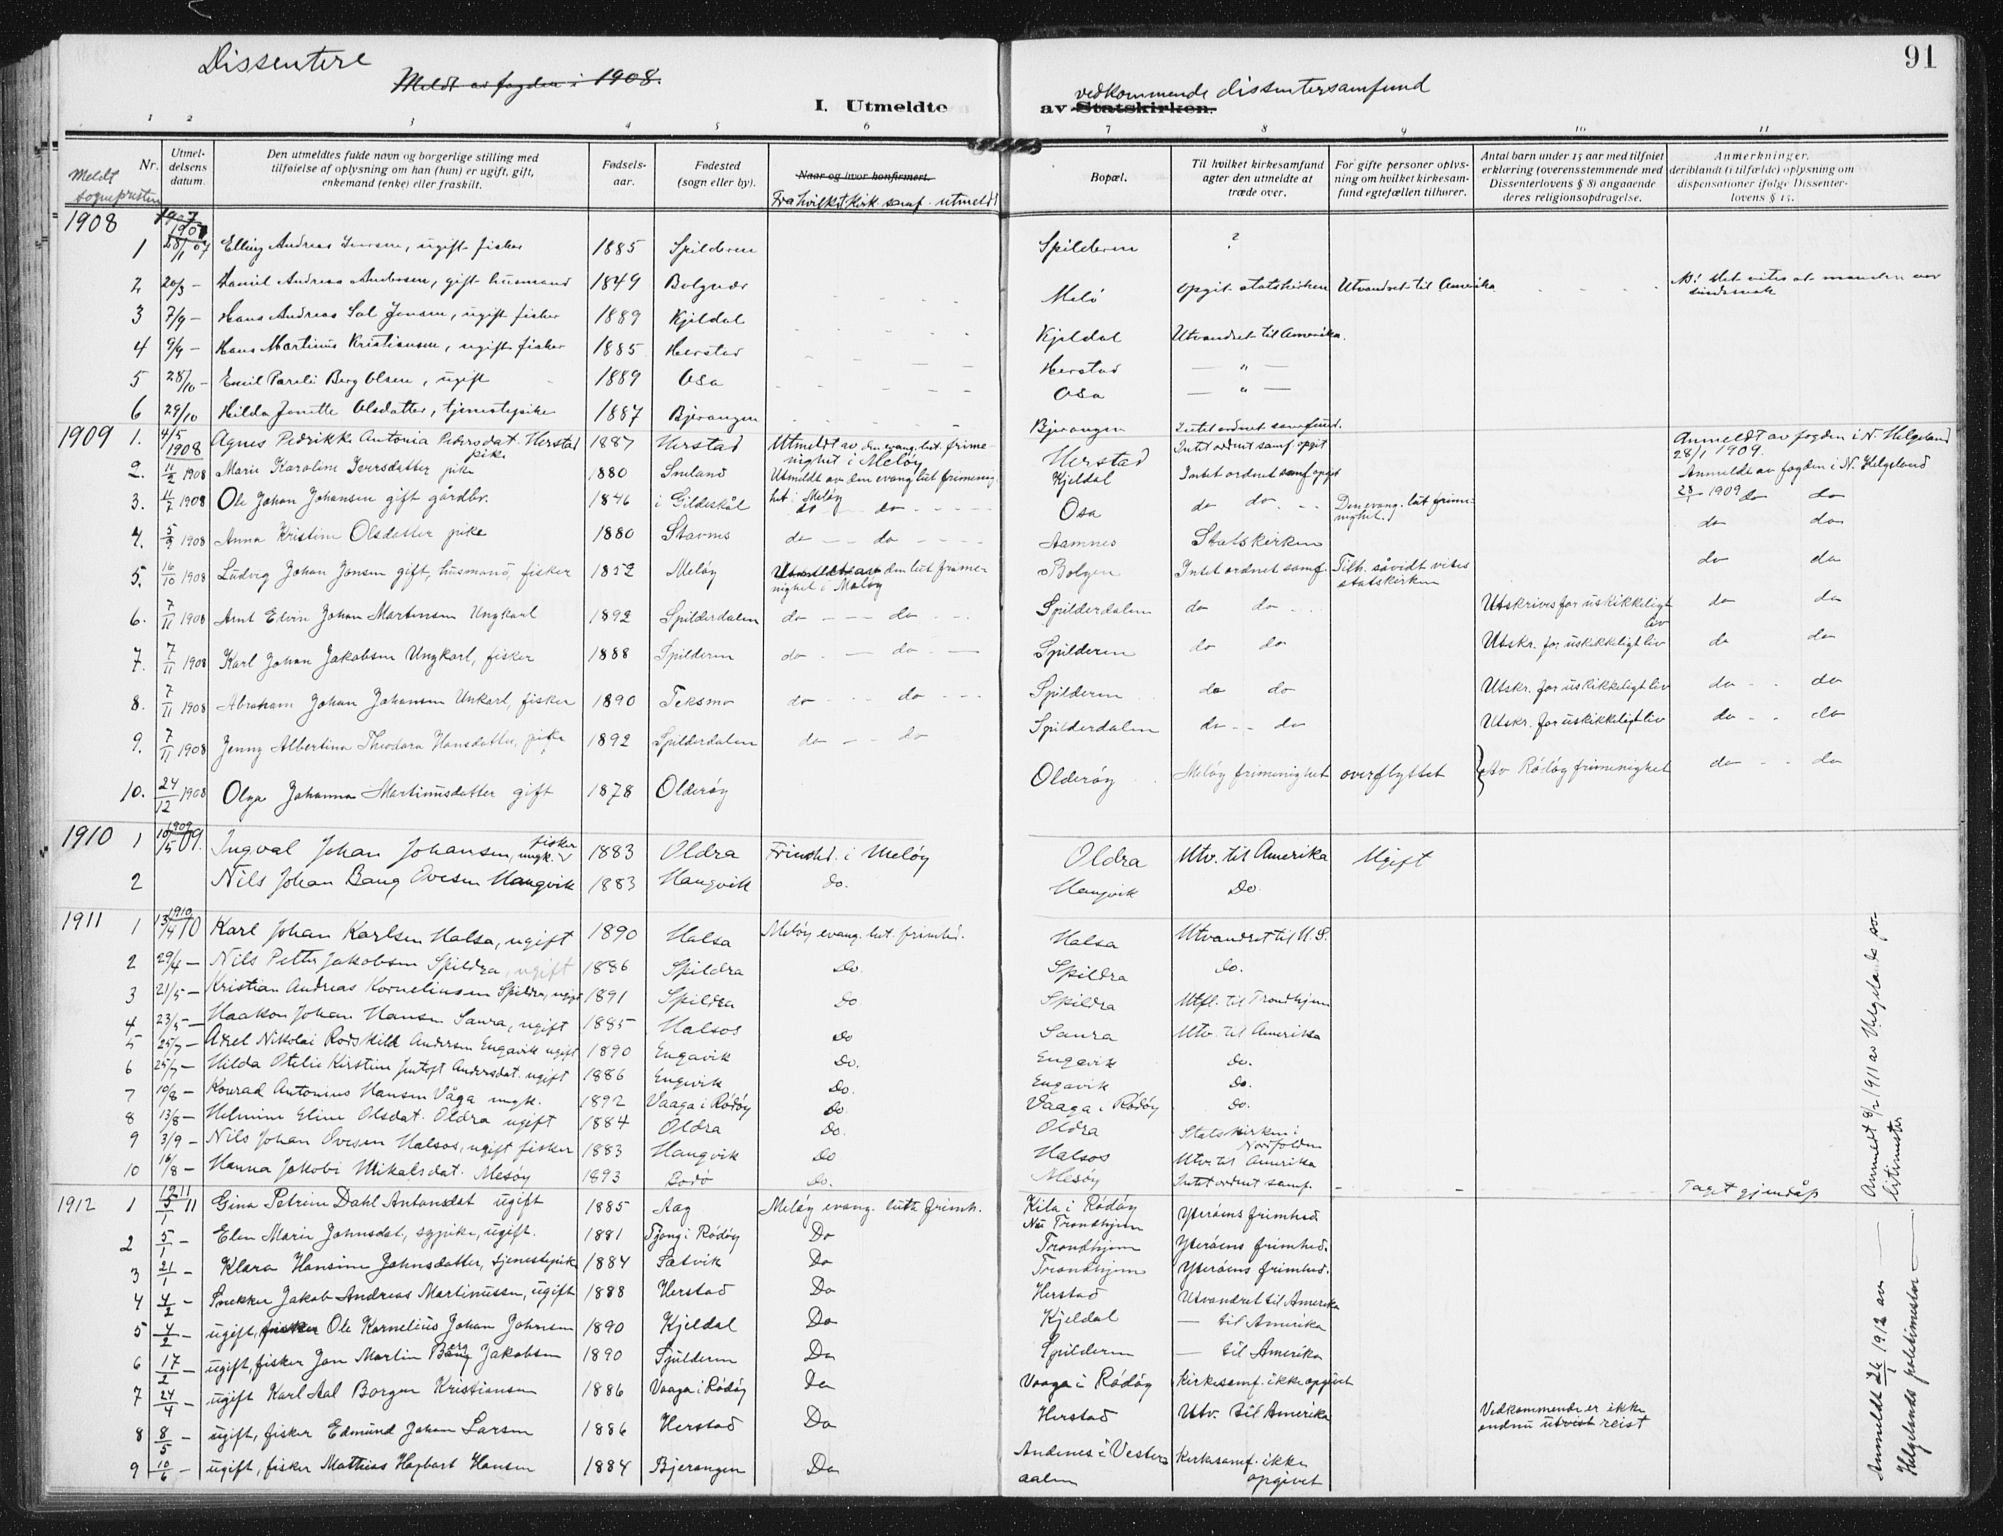 91
Dissentere
Meldt av fogden i 1908.
vedkommende dissentersamfund
I. Utmeldte av Statskirken.
1 2 3 4 5 6 7 8 9 10 11
Meldt sogneprsten
Nr.
Utmeldelsens datum.
Den utmeldtes fulde navn og borgerlige stilling med tilføielse af oplysning om han (hun) er ugift, gift, enkemand (enke) eller fraskilt.
Fødselsaar.
Fødested (sogn eller by).
Naar og hvor konfirmert.
Fra hvilket kirk. samf. utmeldt
Bopæl.
Til hvilket kirkesamfund agter den utmeldte at træde over.
For gifte personer oplysning om hvilket kirkesamfund egtefællen tilhører.
Antal barn under 15 aar med tilføiet erklæring (overensstemmende med Dissenterlovens § 8) angaaende deres religionsopdragelse.
Anmerkninger, deriblandt (i tilfælde) oplysning om dispensationer ifølge Dissenterlovens § 15.
1908 1907
1 28/1 07 Elling Andreas Iversen, ugift fisker 1885 Spilderen Spilderen ?
2 20/3 – Daniel Andreas Andersen, gift husmand 1849 Bolgnæs Melö opgit statskirken Utvandret til Amerika NB! Det vites at manden var sindssvak
3 7/9 – Hans Andreas Sal Jensen, ugift fisker 1889 Kjeldal Kjeldal Utvandret til Amerika.
4 9/9 – Hans Martinus Kristiansen, ugift fisker 1885 Herstad Herstad — " —
5 28/10 – Emil Pareli Berg Olsen, ugift 1889 Osa Osa — " —
6 29/10 Hilda Jonette Olsdatter, tjenestepike 1887 Bjerangen Bjerangen Intet ordnet samfund.
1909 1. 4/5 1908 Agnes Pedrikke Antonia Pedersdat. Herstad pike 1887 Herstad Utmeldt av den evang. lut. frimenighet i Meløy Herstad Intet ordnet samf. opgit Anmeldt av fogden i N. Helgeland 28/1 1909.
2. 11/2 1908 Marie Karoline Iversdatter pike 1880 Smland Utmeldt av den evang lut frimenighet i Meløy Kjeldal Intet ordnet samf opgit Anmeldt av fogden i N. Helgeland 28/1 1909
3. 11/2 1908 Ole Johan Johansen gift gårdbr. 1846 i Gildeskål do – do Osa do do Den evang. lut frimenighet. do do
4. 5/9 1908 Anna Kristine Olsdatter pike 1880 Stavnes do – – do Aamnes Statskirken do do
5. 16/10 1908 Ludvig Johan Jonsen gift, husmand, fisker 1852 Meløy Utmeldt av den lut frimenighet i Meløy Bolgen Intet ordnet samf. Tilh. såvidt vites statskirken do do
6. 7/11 1908 Arnt Edvin Johan Martinsen Ungkarl 1892 Spilderdalen do – – – do – Spilderdalen do do Utskrives for uskikkeligt liv do do
7. 7/11 1908 Karl Johan Jakobsen Ungkarl, fisker 1888 Spilderen do – — do – — Spilderen do do Utskr. for uskikkeligt liv do do
8. 7/11 1908 Abraham Johan Johansen Unkarl, fisker 1890 Teksmo do – – – do – – Spilderen do do Utskr. for uskikkeligt liv do – – do
9. 7/11 1908 Jenny Albertina Theodora Hansdatter, pike 1892 Spilderdalen do – – do Spilderdalen do – – do Utskr. for uskikkeligt liv do – – do
10. 24/12 1908 Olga Johanna Martinusdatter gift 1878 Olderøy Olderøy Meløy frimenighet overflyttet Av Rödøy frimenighet do – – do
1910 1909
1 10/5 09. Ingval Johan Johansen, fisker ungk. 1883 Oldra Frimhd. i Meløy Oldra Utv. til Amerika Ugift
2 Nils Johan Bang Ovesen Hangvik 1883 Hangvik Do. Hangvik Do
1911 1910
1 13/4 10 Karl Johan Karlsen Halsa, ugift 1890 Halsa Meløy evang. lut. frimhd. Halsa Utvandret til U.S.
2 29/4 – Nils Petter Jakobsen Spildra, ugift 1886 Spildra Do. Spildra Do.
3 21/5 – Kristian Andreas Korneliussen Spildra, ugift 1891 Spildra Do Spildra Utfl. til Trondhjem
4 23/5 – Haakon Johan Hansen Saura, ugift 1885 Halsos Do Saura Utv. til Amerika
5 25/7 – Axel Nikolai Rodskild Andersen Engavik ugift 1890 Engavik Do. Engavik Do.
6 25/7 – Hilda Otelie Kirstine Jentoft Andersdat. ugift 1886 Engavik Do. Engavik Do.
7 10/8 – Konrad Antonius Hansen Våga ungk. 1892 Vaaga i Rödöy Do. Vaaga i Rödöy Do.
8 13/8 – Helmine Eline Olsdat. Oldra ugift 1884 Oldra Do. Oldra Statskirken i Nordfolden
9 3/9 – Nils Johan Ovesen Halsos, ugift fisker 1883 Hangvik Do Halsos Utv. til Amerika
10 16/8 – Hanna Jakobi Mikalsdat. Mesøy 1893 Bodø Do. Mesøy Intet ordnet samf. Taget gjendåp
Anmeldt 8/2 1911 av Helgelands politimester
1912 1911
1 5/1 11 Gina Petrine Dahl Antonsdat ugift 1885 Aag Meløy evang. luth frimh. Kila i Rödöy Nu Trondhjem Ytterøens frimhed
2 5/1 – Elen Marie Johnsdat, sypike, ugift. 1881 Tjong i Rödöy Do Trondhjem Ytterøens frimhed.
3 21/1 – Klara Hansine Johnsdatter, tjenestepike 1884 Sætvik Do Trondhjem Ytterøens frimhed.
4 4/2 – Snekker Jakob Andreas Martinussen, ugift 1888 Herstad Do Herstad Utvandret til Amerika
5 4/2 – ugift, fisker Ole Kornelius Johan Johnsen 1890 Kjeldal Do Kjeldal — til Amerika
6 17/2 – ugift, fisker Jon Martin Berg Jakobsen 1890 Spilderen Do Spilderen — til Amerika
7 24/4 – ugift Karl Aal Borgen Kristiansen 1886 Vaaga i Rödöy Do Vaaga i Rödöy Kirkesamf. ikke opgivet
8 8/5 – ugift, fisker Edmund Johan Larsen 1886 Herstad Do Herstad Utv. til Amerika Vedkommende er ikke endnu utreist reist
9 10/6 – ugift, fisker Mathias Hagbart Hansen 1884 Bjerangen Do Andenes i Vesteraalen Kirkesamf. ikke opgivet
Anmeldt 26/1 1912 av Helgelands politimester